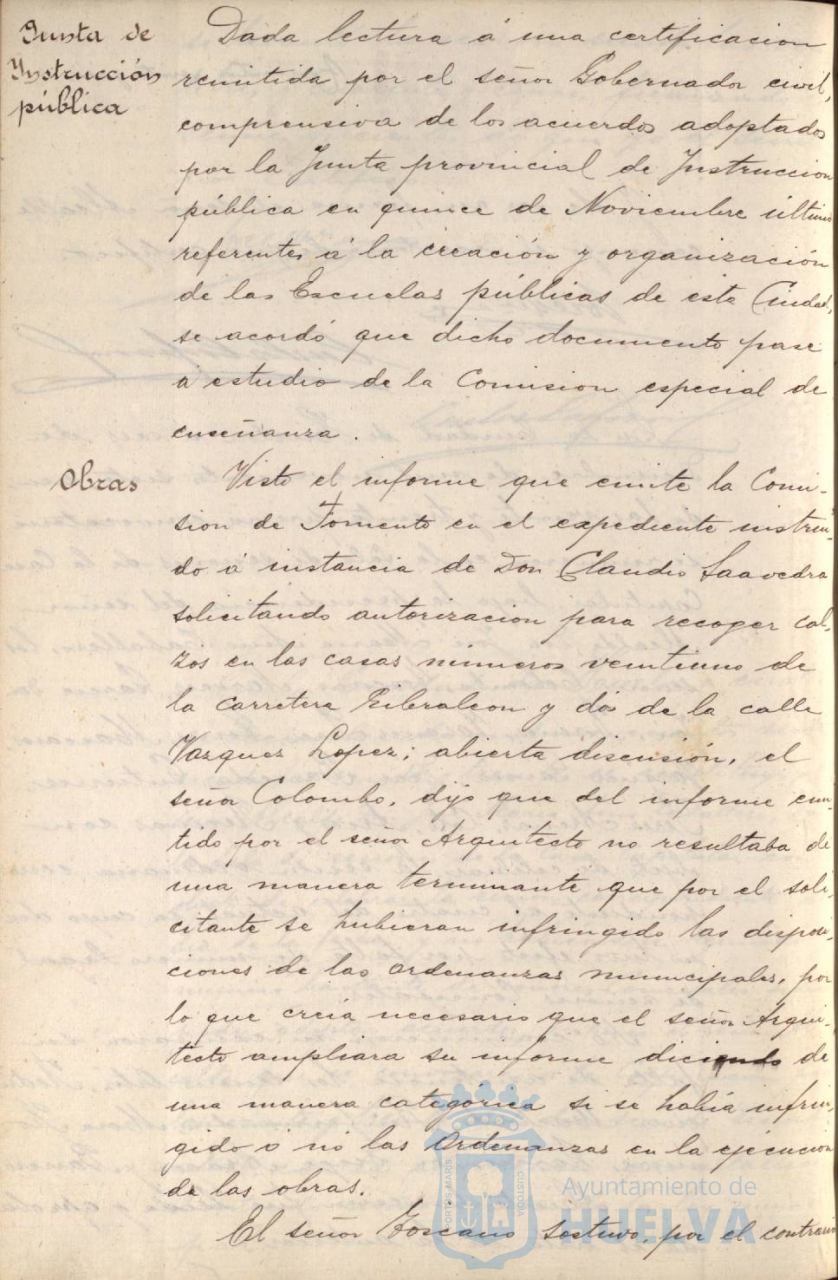 Junta de
Instrucción
pública
Dada lectura á una certificacion
remitida por el señor Gobernador civil,
comprensiva de los acuerdos adoptados
por la Junta provincial de Instruccion
pública en quince de Noviembre último
referentes á la creación y organización
de las Escuelas públicas de esta Ciudad,
se acordó que dicho documento pase
á estudio de la Comision especial de
enseñanza.
Obras
Visto el informe que emite la Comi-
sion de Fomento en el expediente instrui-
do á instancia de Don Claudio Saavedra
solicitando autorizacion para recoger cal-
zos en las casas números veintiuno de
la carretera Gibraleon y dos de la calle
Vazquez Lopez; abierta discusión, el
señor Colombo, dijo que del informe emi-
tido por el señor Arquitecto no resultaba de
una manera terminante que por el soli-
citante se hubieran infringido las disposi-
ciones de las ordenanzas municipales, por
lo que creia necesario que el señor Arqui-
tecto ampliara su informe diciendo de
una manera categorica si se habia infrin-
gido ó nó las Ordenanzas en la ejecucion
de las obras.
El señor Toscano sostuvo, por el contrario
PORTUS MARIS
CUSTODIA
Ayuntamiento de
HUELVA